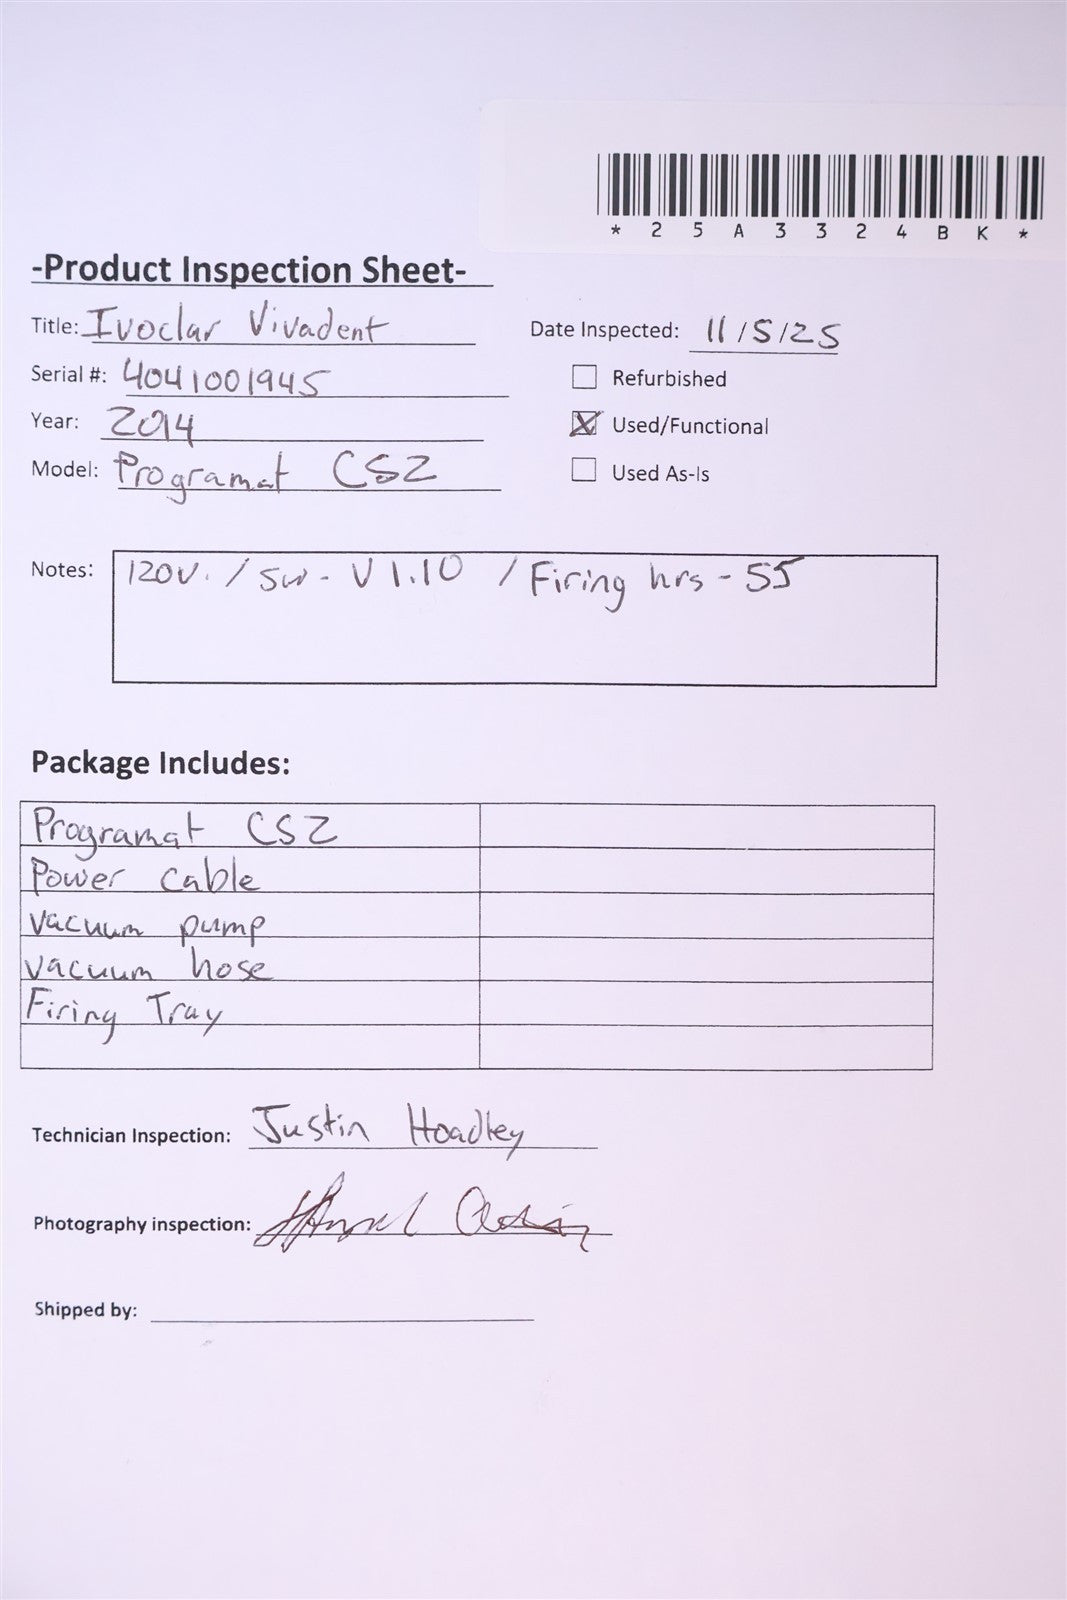 * 2 5 A 3 3 2 4 B K *
-Product Inspection Sheet-
Title: Ivoclar Vivadent
Date Inspected: 11/5/25
Serial #: 4041001945
Refurbished
Year: 2014
Used/Functional
Model: Programat CS2
Used As-Is
Notes: 120V. / SW - V1.10 / Firing hrs - 55
Package Includes:
Programat CS2
Power Cable
Vacuum pump
Vacuum hose
Firing Tray
Technician Inspection: Justin Hoadley
Photography inspection:
Shipped by: